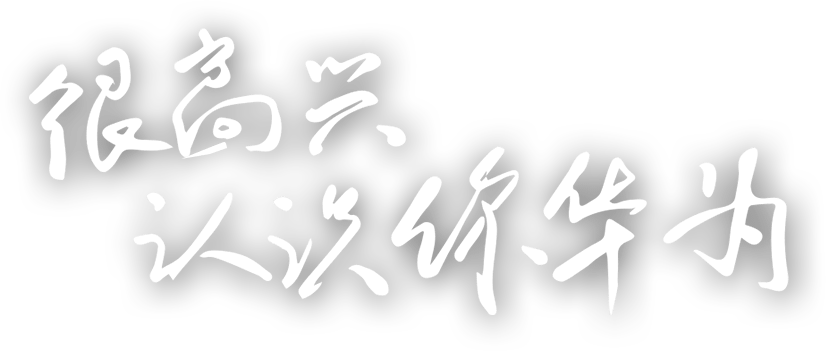 很高兴
认识你、华为